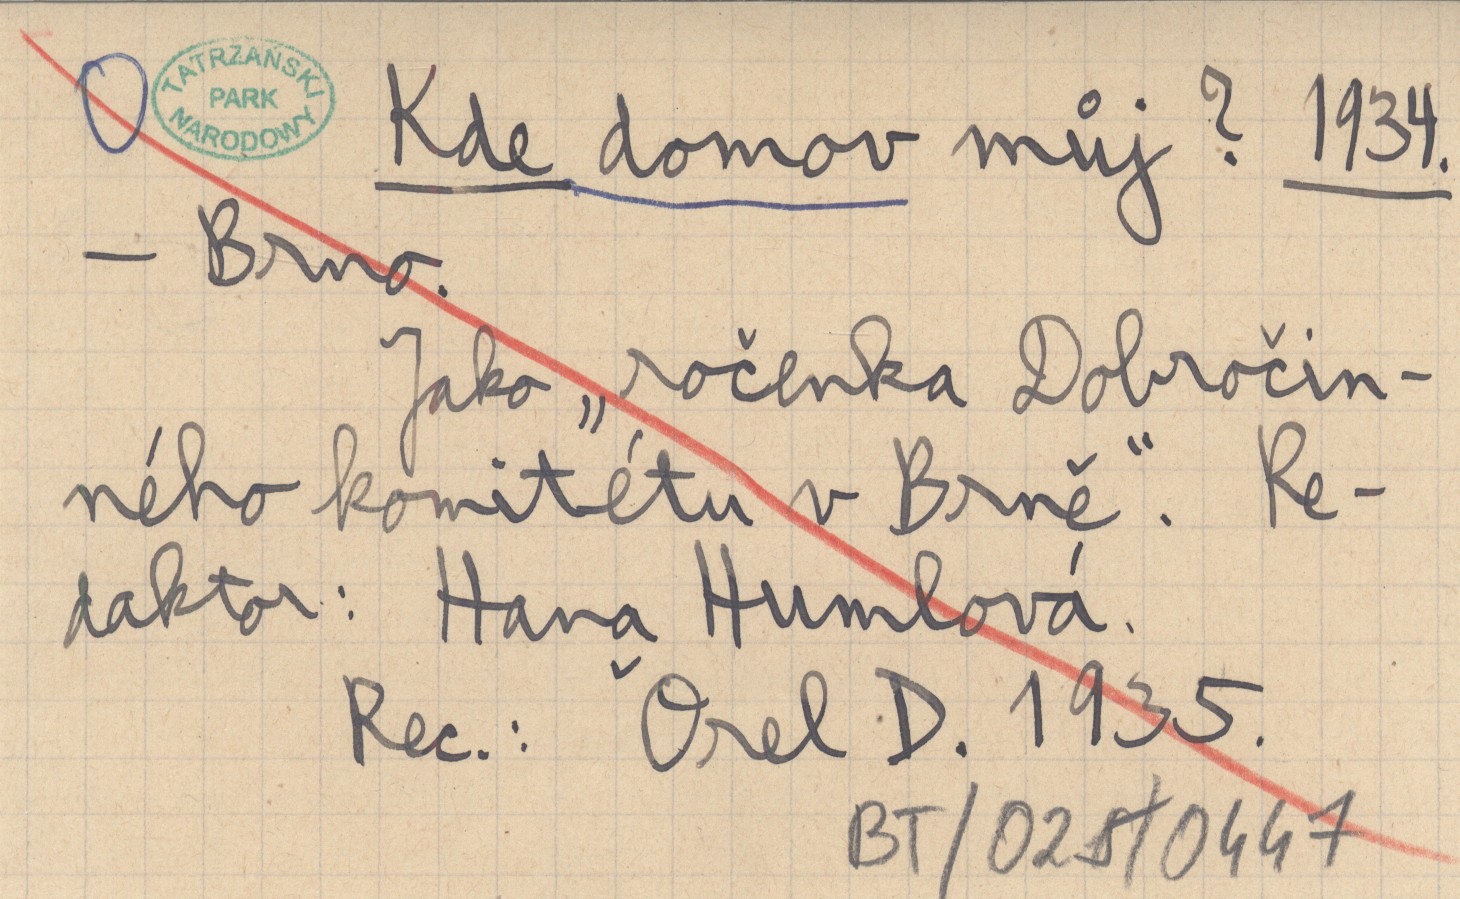 TATRZAŃSKI
PARK
NARODOWY
Kde domov můj? 1934.
– Brno.
Jako „ročenka Dobročin-
ného komitétu v Brně“. Re-
daktor: Hana Humlová.
Rec.: Orel D. 1935.
BT/028/0447